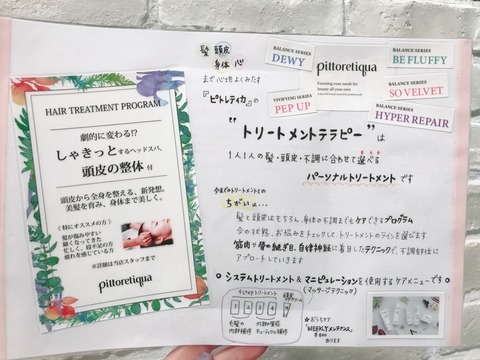 HAIR TREATMENT PROGRAM
劇的に変わる!?
しゃきっとするヘッドスパ、
頭皮の整体 付
頭皮から全身を整える、新発想。
美髪を育み、身体まで美しく。
（特にオススメの方）
髪が傷みやすい
細くなってきた
忙しく、寝不足の方
疲れを感じている方
※詳細は当店スタッフまで
pittoretiqua
髪 頭皮
身体 心
まで心地よくみたす
『ピトレティカ』の
BALANCE SERIES
DEWY
VIVIFYING SERIES
PEP UP
pittoretiqua
Focusing your needs for
beauty all your own.
BALANCE SERIES
BE FLUFFY
BALANCE SERIES
SO VELVET
BALANCE SERIES
HYPER REPAIR
"トリートメントテラピー"は
1人1人の髪・頭皮・不調に合わせて選べる
パーソナルトリートメントです
今までのトリートメントとの
ちがいは…
髪と頭皮はもちろん、身体の不調までもケアできるプログラム
今の状態、お悩みをチェックしてトリートメントのラインを選びます
筋肉や骨の継ぎ目、自律神経に着目したテクニックで、不調部位に
アプローチしていきます
システムトリートメント&マニピュレーションを使用するケアメニューです
(マッサージテクニック)
4stepトリートメント
1 2 3 4
毛髪の
内部補修
外部の質感
キューティクル補修
☆おうちケア
"WEEKLYメンテナンス"
あります